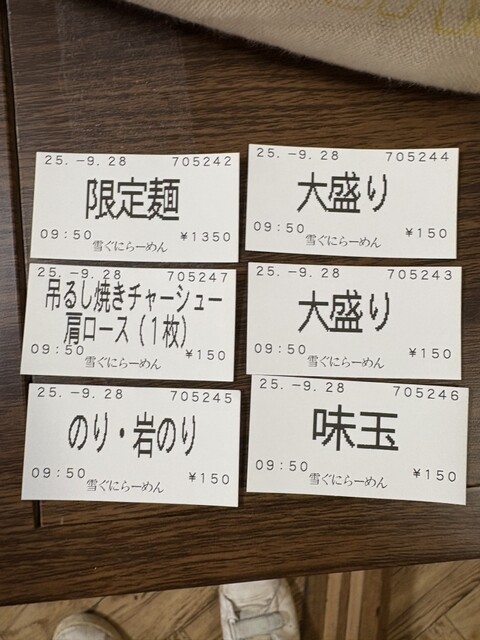 25.-9.28 705242
限定麺
09:50 ¥1350
雪ぐにらーめん
25.-9.28 705244
大盛り
09:50 ¥150
雪ぐにらーめん
25.-9.28 705247
吊るし焼きチャーシュー
肩ロース(1枚)
09:50 ¥150
雪ぐにらーめん
25.-9.28 705243
大盛り
09:50 ¥150
雪ぐにらーめん
25.-9.28 705245
のり・岩のり
09:50 ¥150
雪ぐにらーめん
25.-9.28 705246
味玉
09:50 ¥150
雪ぐにらーめん